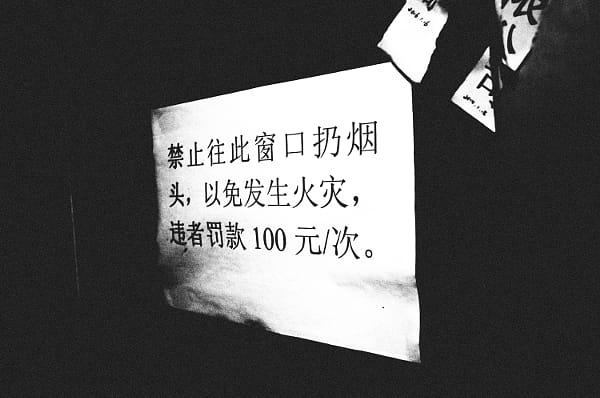 禁止往此窗口扔烟
头，以免发生火灾，
违者罚款 100 元/次。